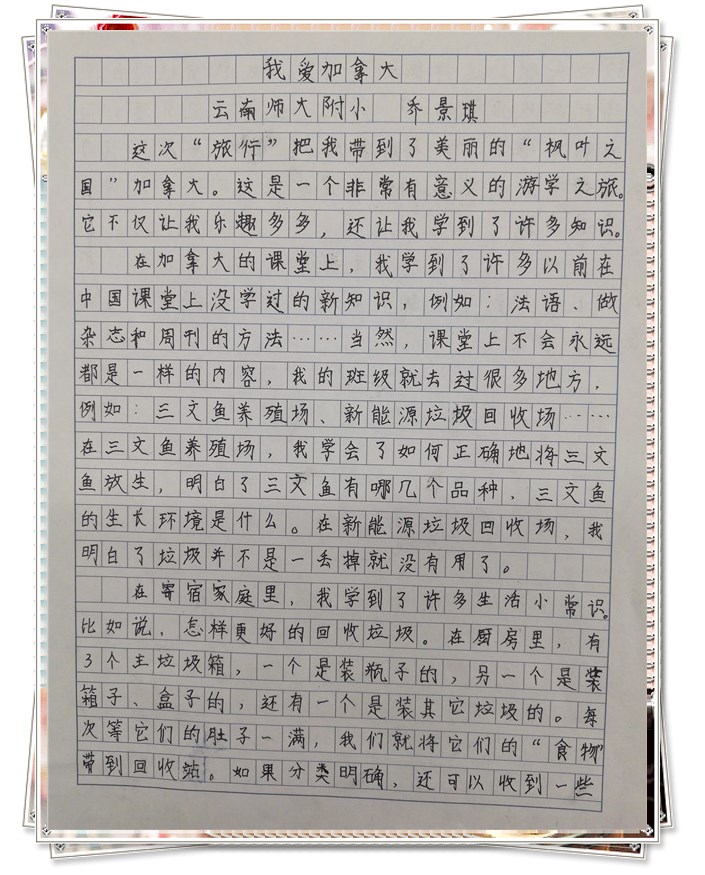 我爱加拿大
云南师大附小 乔景琪
这次“旅行”把我带到了美丽的“枫叶之
国”加拿大。这是一个非常有意义的游学之旅。
它不仅让我乐趣多多，还让我学到了许多知识。
在加拿大的课堂上，我学到了许多以前在
中国课堂上没学过的新知识，例如：法语、做
杂志和周刊的方法……当然，课堂上不会永远
都是一样的内容，我的班级就去过很多地方，
例如：三文鱼养殖场、新能源垃圾回收场……
在三文鱼养殖场，我学会了如何正确地将三文
鱼放生，明白了三文鱼有哪几个品种，三文鱼
的生长环境是什么。在新能源垃圾回收场，我
明白了垃圾并不是一丢掉就没有用了。
在寄宿家庭里，我学到了许多生活小常识。
比如说，怎样更好的回收垃圾。在厨房里，有
3个主垃圾箱，一个是装瓶子的，另一个是装
箱子、盒子的，还有一个是装其它垃圾的。每
次等它们的肚子一满，我们就将它们的“食物”
带到回收站。如果分类明确，还可以收到一些